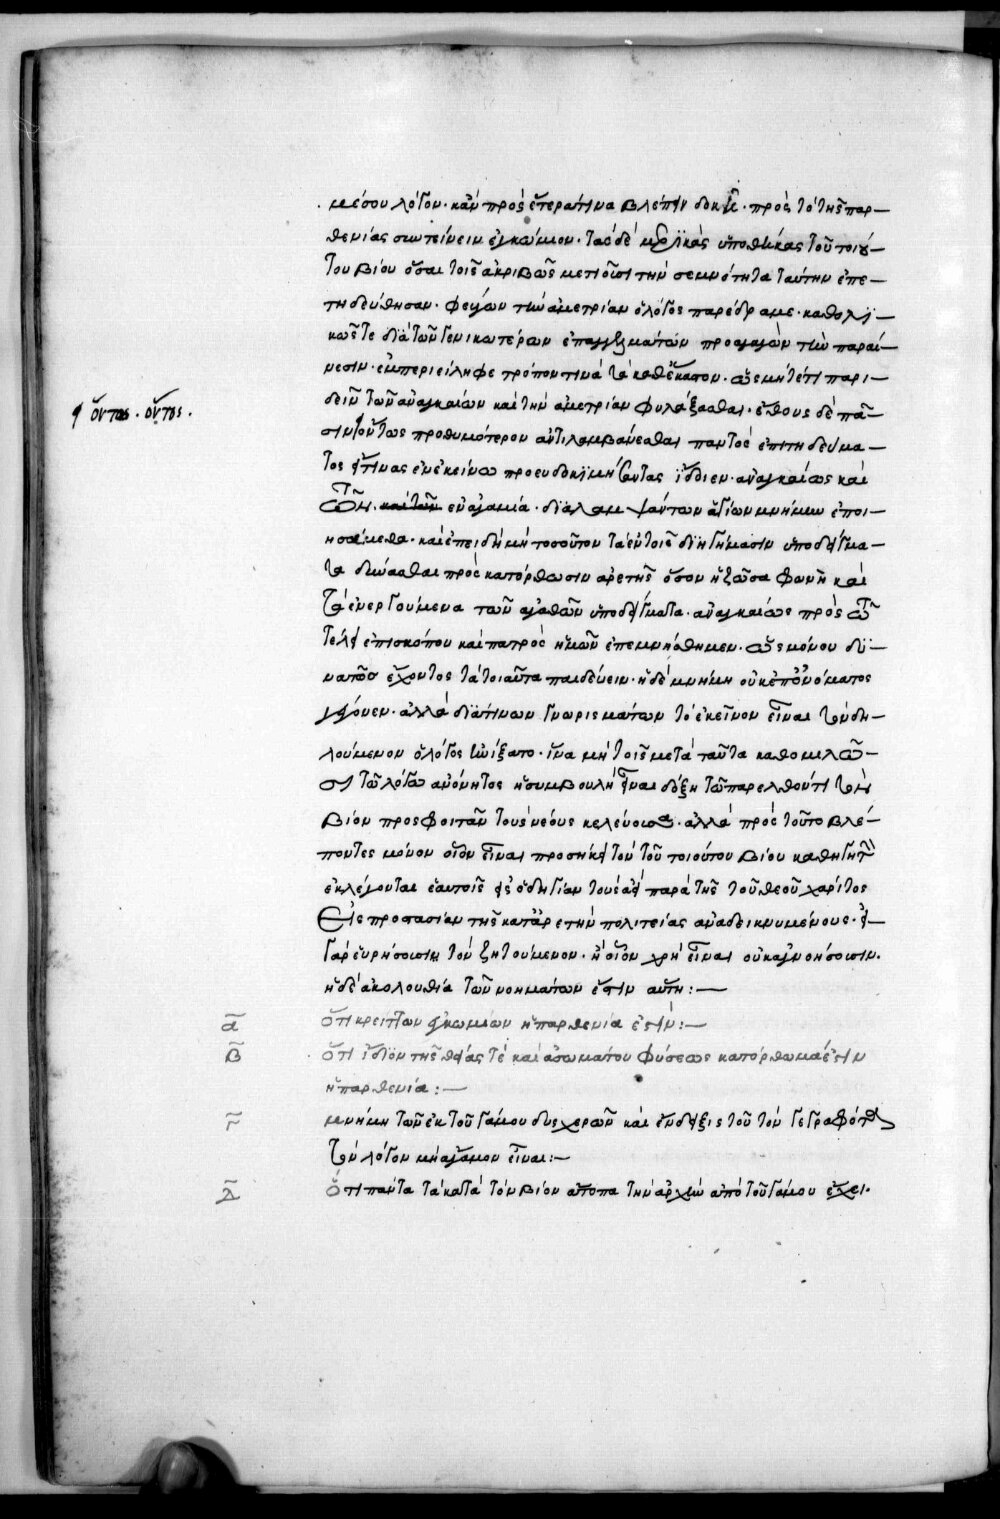 μέσου λόγον· κἂν πρὸς ἕτερα τινα βλέπειν δοκῆ· πρὸς τὸ τῆς παρ-
θενίας συντείνειν ἐγκώμιον· τὰς δὲ μερικὰς ὑποθήκας τοῦ τοιού-
του βίου ὅσαι τοῖς ἀκριβῶς μετιοῦσι τὴν σεμνότητα ταύτην ἐπε-
τηδεύθησαν· φεύγων τὴν ἀμετρίαν ὁ λόγος παρέδραμε· καθολι-
κῶς τε διὰ τῶν γενικωτέρων ἐπαγγελμάτων προαγαγὼν τὴν παραί-
νεσιν· ἐμπεριείληφε τρόπον τινὰ τὰ καθέκαστον· ὡς μήτέ τι παρι-
δεῖν τῶν ἀναγκαίων καὶ τὴν ἀμετρίαν φυλάξασθαι· ἔθους δὲ πᾶ-
ὄντος· οὕτως·
σιν ὄντως προθυμότερον ἀντιλαμβάνεσθαι παντὸς ἐπιτηδεύμα-
τος εἴ τινας ἐν ἐκείνω προευδοκιμήσαντας ἴδοιεν· ἀναγκαίως καὶ
τῶν· καὶ τῶν ἐν ἀγαμία· διαλαμψάντων ἁγίων μνήμην ἐποι-
ησάμεθα· καὶ ἐπειδὴ μὴ τοσοῦτον τὰ ἐν τοῖς διηγήμασιν ὑποδείγμα-
τα δύνασθαι πρὸς κατόρθωσιν ἀρετῆς ὅσον ἡ ζῶσα φωνὴ καὶ
τὰ ἐνεργούμενα τῶν ἀγαθῶν ὑποδείγματα· ἀναγκαίως πρὸς τῶ
τέλει ἐπισκόπου καὶ πατρὸς ἡμῶν ἐπεμνήσθημεν· ὡς μόνου δυ-
νατῶς ἔχοντος τὰ τοιαῦτα παιδεύειν· ἡ δὲ μνήμη οὐκ ἐπ' ὀνόματος
γέγονεν· ἀλλὰ διά τινων γνωρισμάτων τὸ ἐκεῖνον εἶναι τὸν δη-
λούμενον ὁ λόγος ἠνίξατο· ἵνα μὴ τοῖς μετὰ ταῦτα καθομιλοῦ-
σι τῶ λόγω ἀνόνητος ἡ συμβουλὴ εἶναι δόξη τῶ παρελθόντι τὸν
βίον προσφοιτᾶν τοὺς νέους κελεύουσα· ἀλλὰ πρὸς τοῦτο βλέ-
ποντες μόνον οἷον εἶναι προσήκει τὸν τοῦ τοιούτου βίου καθηγητὴν
ἐκλέγονται ἑαυτοῖς εἰς ὁδηγίαν τοὺς ἀεὶ παρὰ τῆς τοῦ θεοῦ χάριτος
εἰς προστασίαν τῆς κατ' ἀρετὴν πολιτείας ἀναδεικνυμένους· εἰ
γὰρ εὑρήσουσιν τὸν ζητούμενον· ἢ οἷον χρὴ εἶναι οὐκ ἀγνοήσουσιν.
ἡ δὲ ἀκολουθία τῶν νοημάτων ἔστιν αὕτη:—
α ὅτι κρείττων ἐγκωμίων ἡ παρθενία ἐστίν:—
β ὅτι ἴδιον τῆς θείας τὲ καὶ ἀσωμάτου φύσεως κατόρθωμά ἐστιν
ἡ παρθενία:—
γ μνήμη τῶν ἐκ τοῦ γάμου δυσχερῶν καὶ ἔνδειξις τοῦ τὸν γεγραφότα
τὸν λόγον μὴ ἄγαμον εἶναι:—
δ ὅτι πάντα τὰ κατὰ τὸν βίον ἄτοπα τὴν ἀρχὴν ἀπὸ τοῦ γάμου ἔχει.